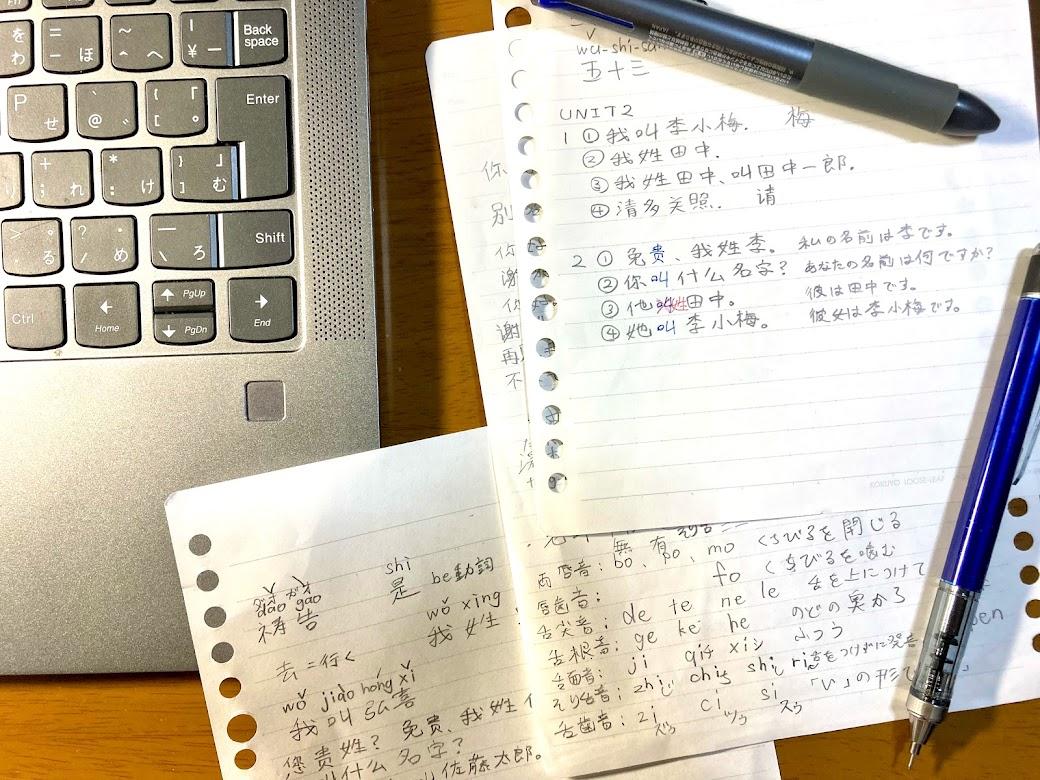 Back space
Enter
Shift
Ctrl
Home
PgUp
PgDn
End
P
せ
ほ
へ
￥
わ
を
れ
け
む
る
め
ろ
JAPAN
wu-shi-san
五十三
UNIT2
1 ① 我叫李小梅. 梅
② 我姓田中.
③ 我姓田中、叫田中一郎.
④ 请多关照. 请
2 ① 免贵、我姓李。 私の名前は李です。
② 你叫什么名字? あなたの名前は何ですか?
③ 他姓田中。 彼は田中です。
④ 她叫李小梅。 彼女は李小梅です。
KOKUYO LOOSE-LEAF
你
別
你
谢
你
谢
再
不
無 有
両唇音: bo、po、mo くちびるを閉じる
唇歯音: fo くちびるを噛む
舌尖音: de te ne le 舌を上につけて
舌根音: ge ke he のどの奥から
舌面音: ji qi チ xi シ ふつう
そり舌音: zhi ヂ chi チ shi シ ri 舌をつけずに発音
舌歯音: zi ズゥ ci ツゥ si スゥ 「い」の形で
pen
shì
是 be動詞
dǎo gào
祷告
wǒ xìng
我姓
去=行く
wǒ jiào hóng xǐ
我叫弘喜
您贵姓? 免贵、我姓
叫什么名字?
佐藤太郎。